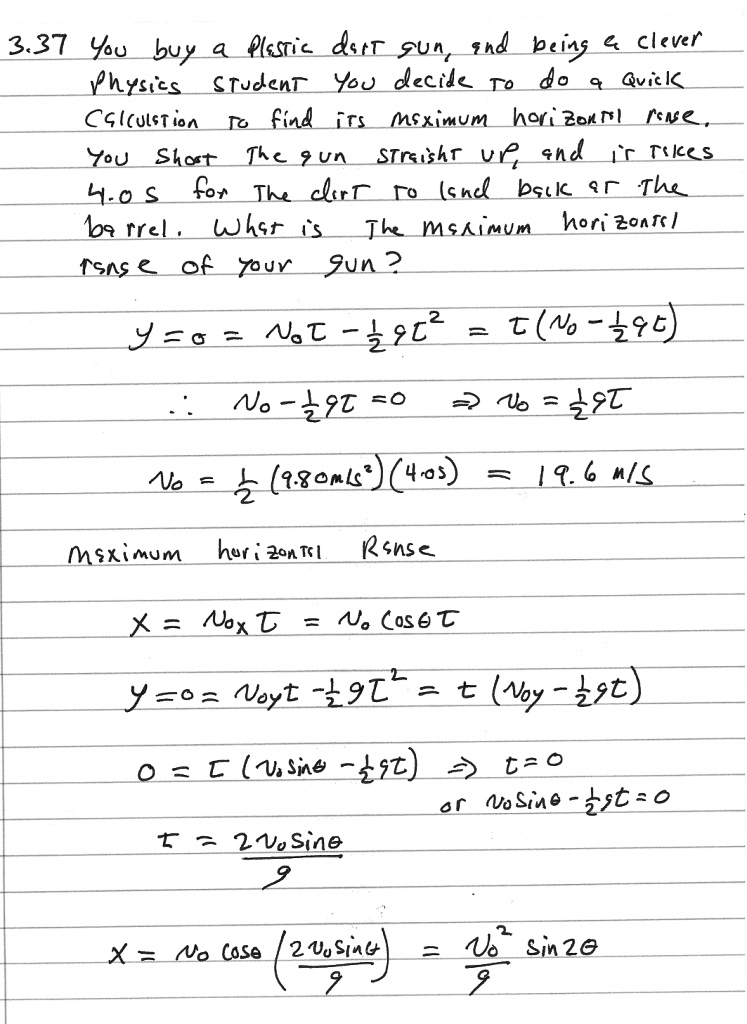 3.37 You buy a plastic dart gun, and being a clever
physics student you decide to do a quick
calculation to find its maximum horizontal range.
You shoot the gun straight up, and it takes
4.0 s for the dart to land back at the
barrel. What is the maximum horizontal
range of your gun?
y = 0 = v₀t - ½gt² = t(v₀ - ½gt)
∴ v₀ - ½gt = 0 ⇒ v₀ = ½gt
v₀ = ½ (9.80 m/s²)(4.0s) = 19.6 m/s
Maximum horizontal Range
x = v₀ₓt = v₀ cosθ t
y = 0 = v₀yt - ½gt² = t (v₀y - ½gt)
0 = t (v₀ sinθ - ½gt) ⇒ t = 0
or v₀ sinθ - ½gt = 0
t = 2v₀ sinθ / g
x = v₀ cosθ (2v₀ sinθ / g) = v₀² / g sin2θ